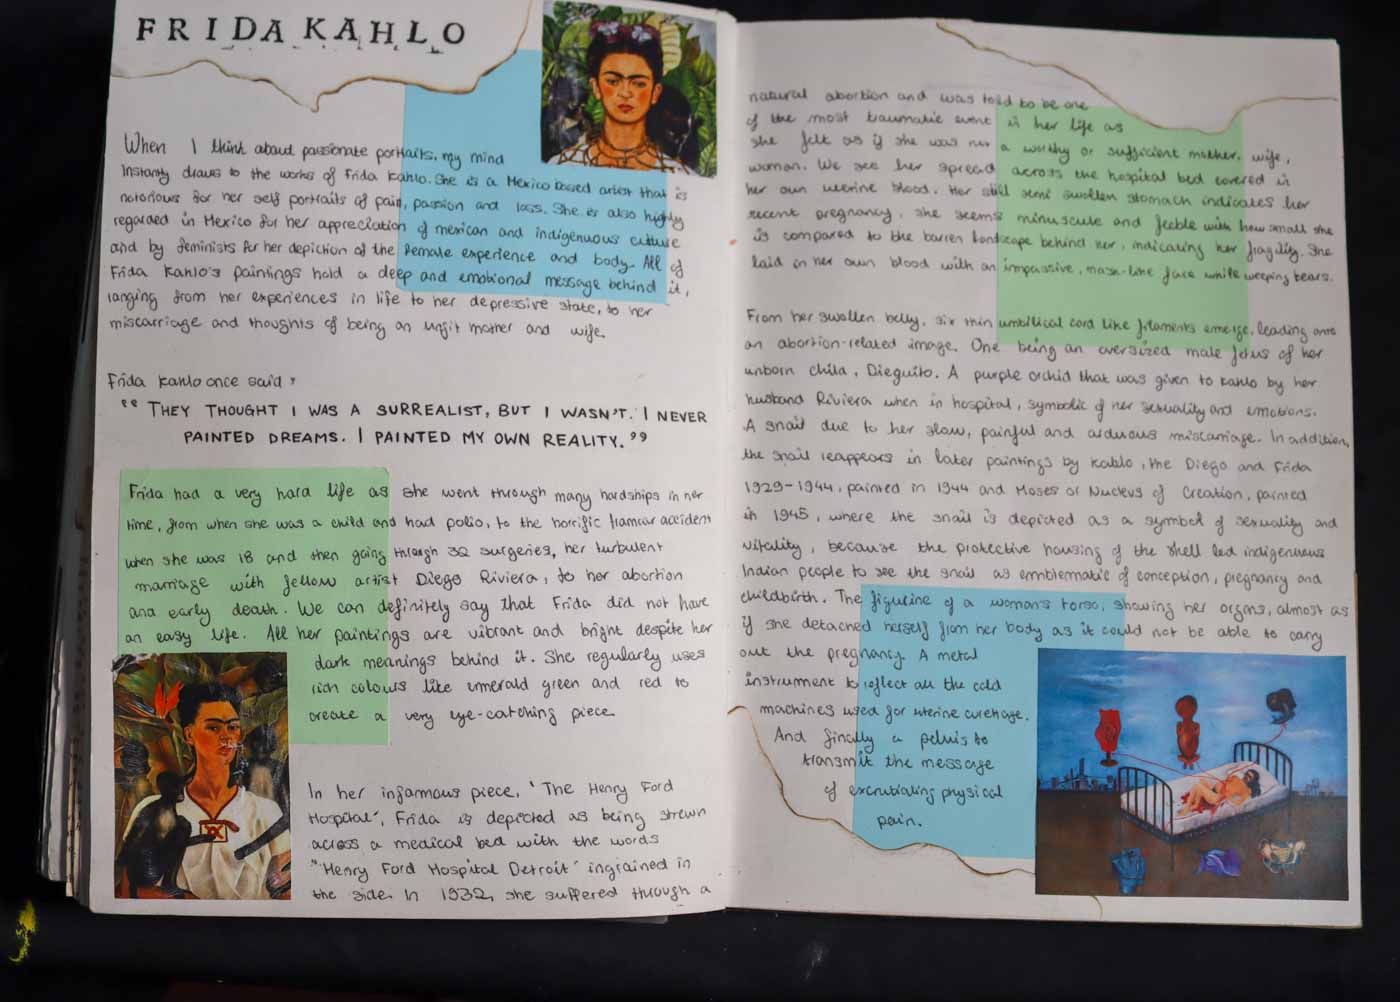 FRIDA KAHLO
When I think about passionate portraits, my mind
instantly draws to the works of Frida Kahlo. She is a Mexico based artist that is
notorious for her self portraits of pain, passion and loss. She is also highly
regarded in Mexico for her appreciation of mexican and indigenous culture
and by feminists for her depiction of the female experience and body. All of
Frida Kahlo's paintings hold a deep and emotional message behind it,
ranging from her experiences in life to her depressive state, to her
miscarriage and thoughts of being an unfit mother and wife.
Frida Kahlo once said,
"THEY THOUGHT I WAS A SURREALIST, BUT I WASN'T. I NEVER
PAINTED DREAMS. I PAINTED MY OWN REALITY."
Frida had a very hard life as she went through many hardships in her
time, from when she was a child and had polio, to the horrific tramcar accident
when she was 18 and then going through 32 surgeries, her turbulent
marriage with fellow artist Diego Riviera, to her abortion
and early death. We can definitely say that Frida did not have
an easy life. All her paintings are vibrant and bright despite her
dark meanings behind it. She regularly uses
rich colours like emerald green and red to
create a very eye-catching piece.
In her infamous piece, 'The Henry Ford
Hospital', Frida is depicted as being strewn
across a medical bed with the words
"Henry Ford Hospital Detroit' ingrained in
the side. In 1932, she suffered through a
natural abortion and was told to be one
of the most traumatic event in her life as
she felt as if she was not a worthy or sufficient mother, wife,
woman. We see her spread across the hospital bed covered in
her own uterine blood. Her still semi swollen stomach indicates her
recent pregnancy, she seems minuscule and feeble with how small she
is compared to the barren landscape behind her, indicating her fragility. She
laid in her own blood with an impassive, mask-like face while weeping tears.
From her swollen belly, six thin umbilical cord like filaments emerge, leading onto
an abortion-related image. One being an oversized male fetus of her
unborn child, Dieguito. A purple orchid that was given to Kahlo by her
husband Riviera when in hospital, symbolic of her sexuality and emotions.
A snail due to her slow, painful and arduous miscarriage. In addition,
the snail reappears in later paintings by Kahlo, the Diego and Frida
1929-1944, painted in 1944 and Moses or Nucleus of Creation, painted
in 1945, where the snail is depicted as a symbol of sexuality and
vitality, because the protective housing of the shell led indigenous
Indian people to see the snail as emblematic of conception, pregnancy and
childbirth. The figurine of a woman's torso, showing her organs, almost as
if she detached herself from her body as it could not be able to carry
out the pregnancy. A metal
instrument to reflect all the cold
machines used for uterine curetage.
And finally a pelvis to
transmit the message
of excrutiating physical
pain.